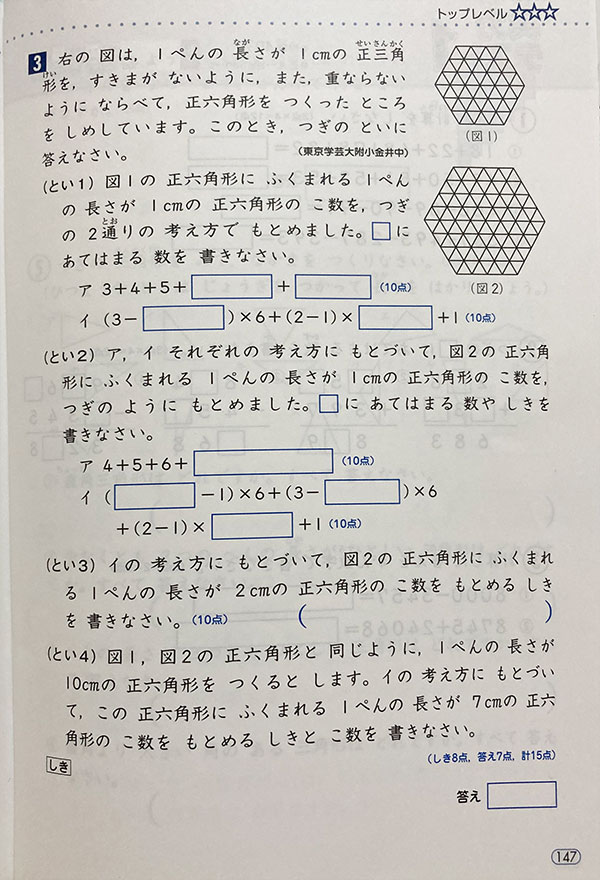 トップレベル ☆☆☆
3 右の 図は，1ぺんの 長さが 1cmの 正三角
形を，すきまが ないように，また，重ならない
ように ならべて，正六角形を つくった ところ
を しめしています。このとき，つぎの といに
答えなさい。 （東京学芸大附小金井中）
（図1）
（とい1） 図1の 正六角形に ふくまれる 1ぺん
の 長さが 1cmの 正六角形の こ数を，つぎ
の 2通りの 考え方で もとめました。□に
あてはまる 数を 書きなさい。
ア 3＋4＋5＋□＋□ （10点）
イ （3－□）×6＋（2－1）×□＋1 （10点）
（図2）
（とい2） ア，イ それぞれの 考え方に もとづいて，図2の 正六角
形に ふくまれる 1ぺんの 長さが 1cmの 正六角形の こ数を，
つぎの ように もとめました。□に あてはまる 数や しきを
書きなさい。
ア 4＋5＋6＋□ （10点）
イ （□－1）×6＋（3－□）×6
＋（2－1）×□＋1 （10点）
（とい3） イの 考え方に もとづいて，図2の 正六角形に ふくまれ
る 1ぺんの 長さが 2cmの 正六角形の こ数を もとめる しき
を 書きなさい。（10点） （ ）
（とい4） 図1，図2の 正六角形と 同じように，1ぺんの 長さが
10cmの 正六角形を つくると します。イの 考え方に もとづい
て，この 正六角形に ふくまれる 1ぺんの 長さが 7cmの 正六
角形の こ数を もとめる しきと こ数を 書きなさい。
（しき8点，答え7点，計15点）
しき
答え
147